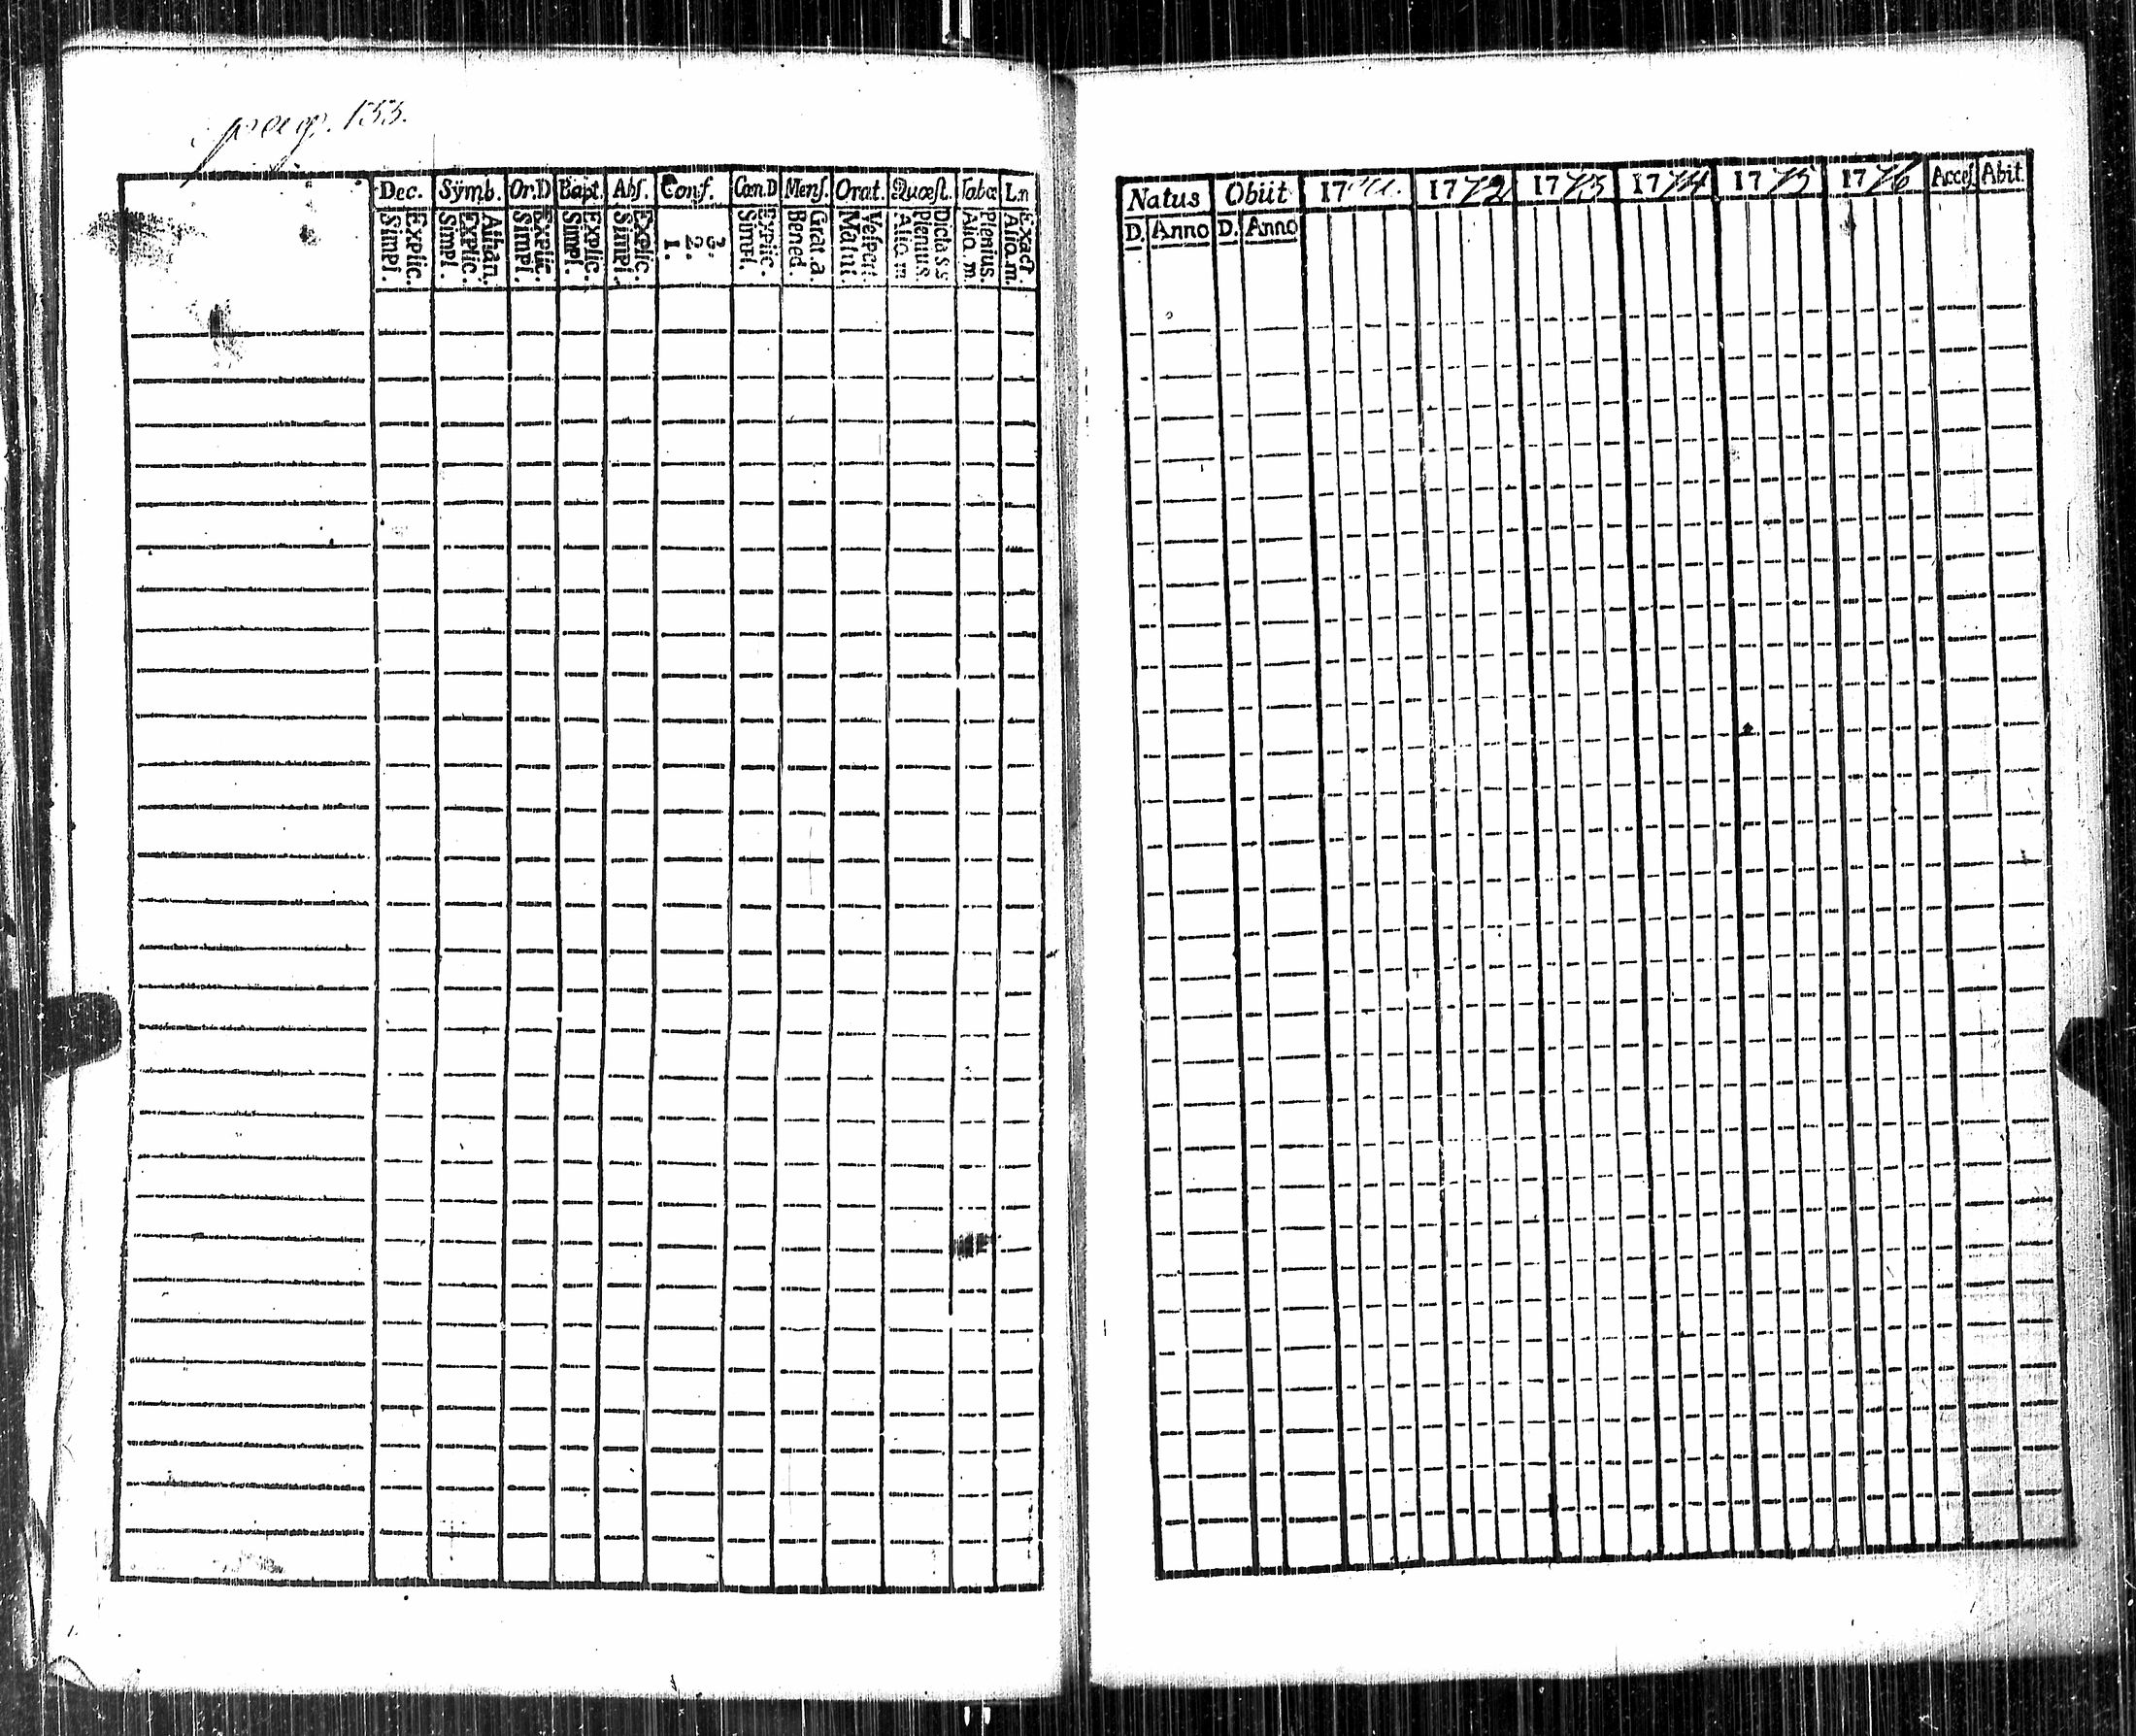 pag. 133.
Dec. Sÿmb. Or.D Bapt. Abs. Conf. Cœn.D Mens. Orat. Quœst. Tabœ L.n
Explic. Simpl. Athan. Explic. Simpl. Explic. Simpl. Explic. Simpl. Explic. Simpl. 3. 2. 1. Explic. Simpl. Grat.a. Bened. Vespert. Matut. Dicta s s Plenius. Aliq.m. Plenius. Aliq.m. Exact Aliq.m.
Natus Obiit 17 1772 1773 1774 1775 1776 Acces Abit.
D. Anno D. Anno